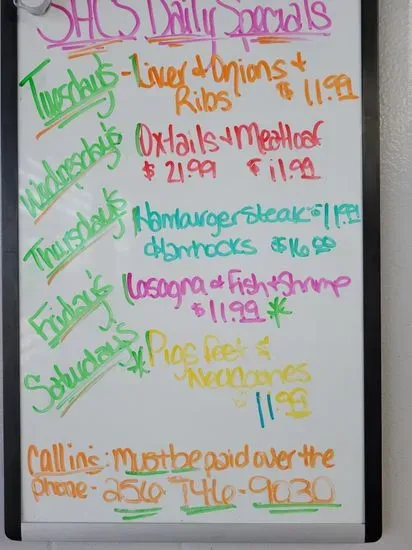 SHCS Daily Specials
Tuesday's - Liver & Onions &
Ribs $11.99
Wednesday's Oxtails & Meatloaf
$21.99 $11.99
Thursday's Hamburger Steak $11.99
& Hamhocks $16.99
Friday's Lasagna & Fish & Shrimp
$11.99 *
Saturday's * Pigs feet &
Neckbones
$11.99
Call ins: Must be paid over the
phone - 256-746-9030